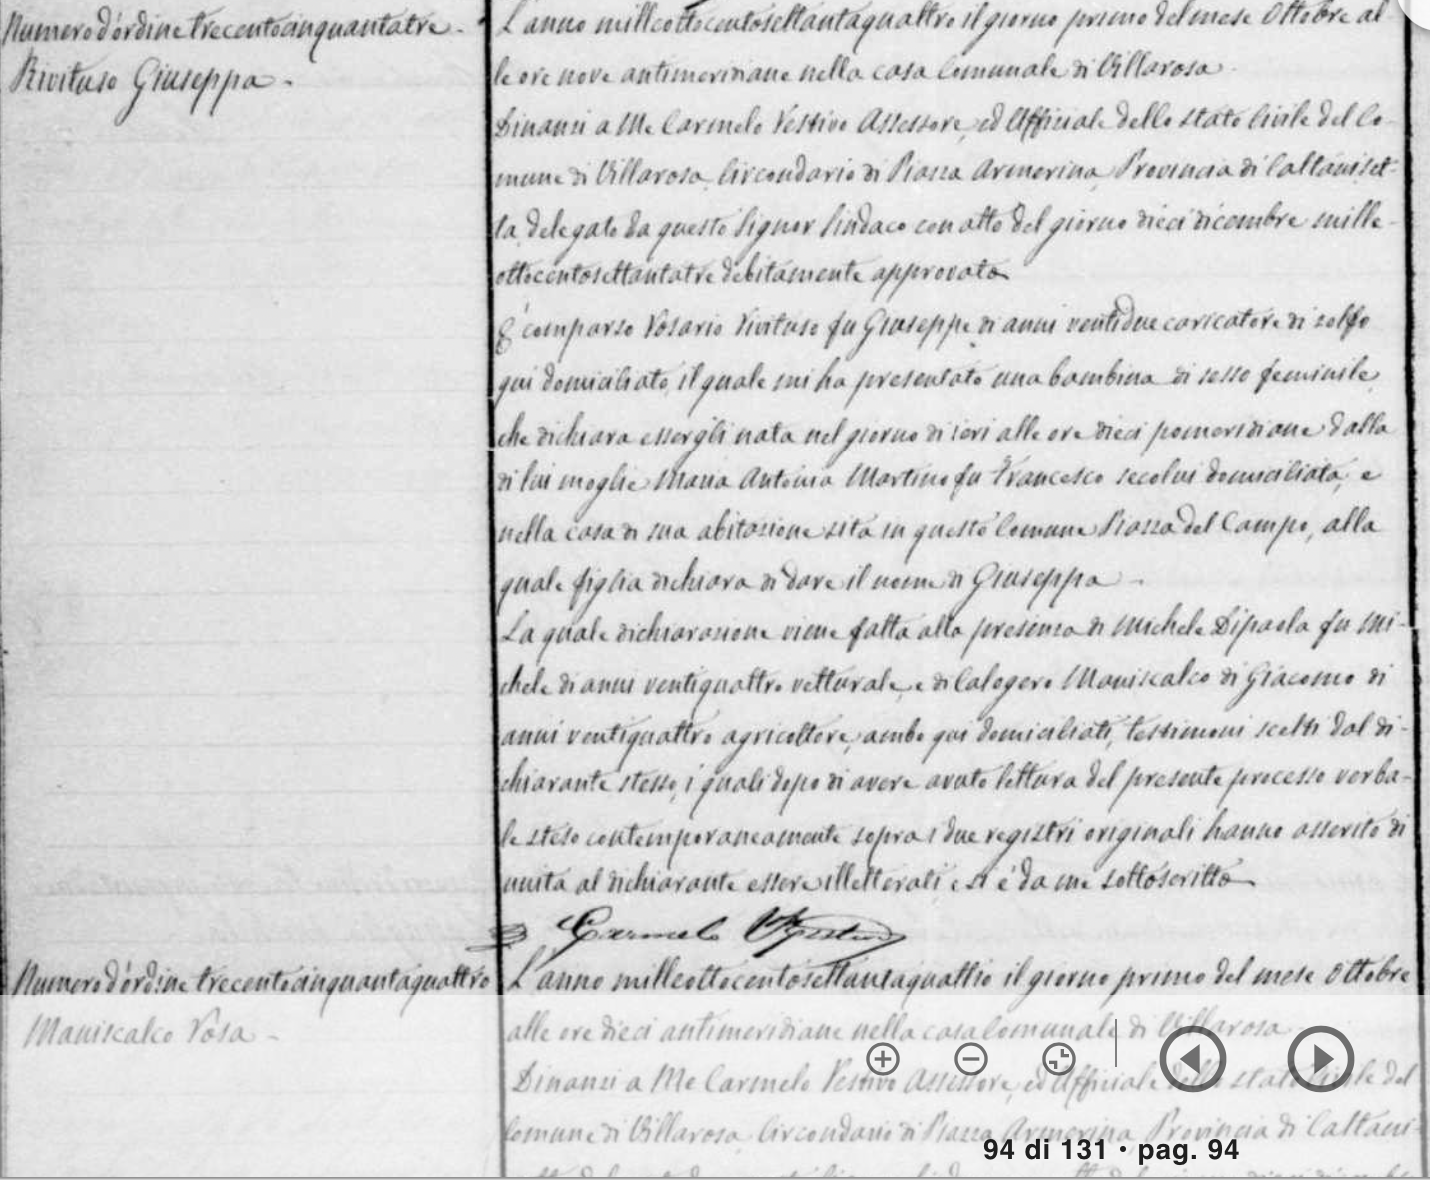 Numero d'ordine trecentocinquantatre
Rivituso Giuseppa
L'anno millcottocentosettantaquattro il giorno primo del mese Ottobre al-
le ore nove antimeridiane nella casa Comunale di Villarosa
Dinanzi a Me Carmelo Vestivo Assessore, ed Uffiziale dello stato Civile del Co-
mune di Villarosa, Circondario di Piazza Armerina, Provincia di Caltaniset-
ta, delegato da questo Signor Sindaco con atto del giorno dieci dicembre mille-
ottocentosettantatre debitamente approvato
È comparso Rosario Rivituso fu Giuseppe di anni ventidue caricatore di zolfo
qui domiciliato, il quale mi ha presentato una bambina di sesso feminile,
che dichiara essergli nata nel giorno di ieri alle ore dieci pomeridiane dalla
di lui moglie Maria Antonia Martino fu Francesco secolui domiciliata, e
nella casa di sua abitazione sita in questo Comune Piazza del Campo, alla
quale figlia dichiara di dare il nome di Giuseppa
La quale dichiarazione viene fatta alla presenza di Michele Dipaola fu Mi-
chele di anni ventiquattro vetturale, e di Calogero Maniscalco di Giacomo di
anni ventiquattro agricoltore, ambo qui domiciliati, testimoni scelti dal di-
chiarante stesso, i quali dopo di avere avuto lettura del presente processo verba-
le steso contemporaneamente sopra i due registri originali hanno asserito di
unita al dichiarante essere illetterati, e si è da me sottoscritto
Carmelo
Numero d'ordine trecentocinquantaquattro
Maniscalco Rosa
L'anno milleottocentosettantaquattro il giorno primo del mese Ottobre
alle ore dieci antimeridiane nella casa Comunale di Villarosa
Dinanzi a Me Carmelo Vestivo Assessore, ed Uffiziale dello stato Civile del
Comune di Villarosa, Circondario di Piazza Armerina, Provincia di Caltani-
94 di 131 • pag. 94